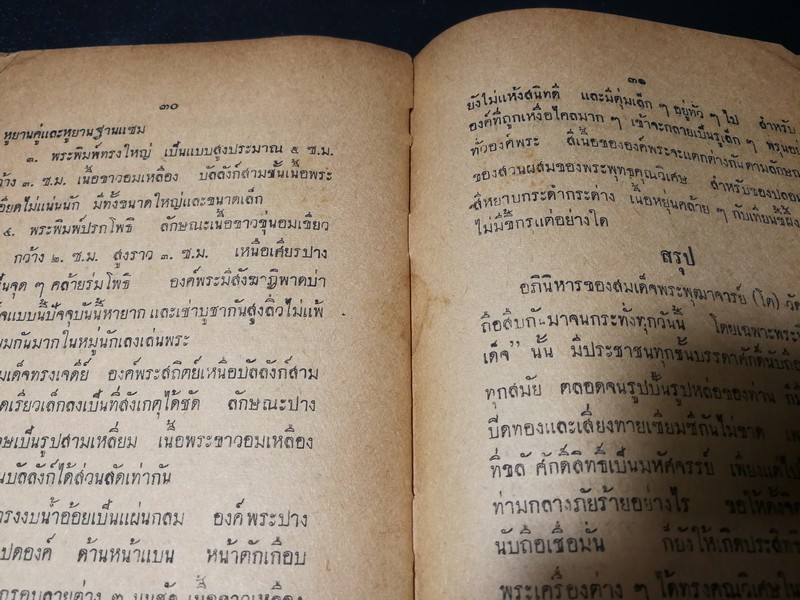 ๓๐
หูยานคู่และหูยานฐานแซม
๓. พระพิมพ์ทรงใหญ่ เป็นแบบสูงประมาณ ๕ ซ.ม.
กว้าง ๓. ซ.ม. เนื้อขาวอมเหลือง บัลลังก์สามชั้นเนื้อพระ
ละเอียดไม่แน่นนัก มีทั้งขนาดใหญ่และขนาดเล็ก
๔. พระพิมพ์ปรกโพธิ ลักษณะเนื้อขาวขุ่นอมเขียว
กว้าง ๒. ซ.ม. สูงราว ๓. ซ.ม. เหนือเศียรปาง
เป็นจุด ๆ คล้ายร่มโพธิ องค์พระมีสังฆาฏิพาดบ่า
แบบนี้ปัจจุบันนี้หายาก และเช่าบูชากันสูงลิ่วไม่แพ้
กันมากในหมู่นักเลงเล่นพระ
สมเด็จทรงเจดีย์ องค์พระสถิตย์เหนือบัลลังก์สาม
เรียวเล็กลงเป็นที่สังเกตุได้ชัด ลักษณะปาง
เป็นรูปสามเหลี่ยม เนื้อพระขาวอมเหลือง
บัลลังก์ได้ส่วนสัดเท่ากัน
ทรงงบน้ำอ้อยเป็นแผ่นกลม องค์พระปาง
แปดองค์ ด้านหน้าแบน หน้าตักเกือบ
๓๑
ยังไม่แห้งสนิทดี และมีตุ่มเล็ก ๆ อยู่ทั่ว ๆ ไป สำหรับ
องค์ที่ถูกเหงื่อไคลมาก ๆ เข้าจะกลายเป็นรูเล็ก ๆ พรุนอยู่
ทั่วองค์พระ สีเนื้อขององค์พระจะแตกต่างกันตามลักษณะ
ของส่วนผสมของพระพุทธคุณวิเศษ สำหรับของปลอม
สีหยาบกระดำกระด่าง เนื้อหยุ่นคล้าย ๆ กับเทียนขี้ผึ้ง
ไม่มีขี้กรแต่อย่างใด
สรุป
อภินิหารของสมเด็จพระพุฒาจารย์ (โต) วัด
ถือสืบกันมาจนกระทั่งทุกวันนี้ โดยเฉพาะพระ
เด็จ” นั้น มีประชาชนทุกชั้นบรรดาศักดิ์นับถือ
ทุกสมัย ตลอดจนรูปปั้นรูปหล่อของท่าน ก็มี
ปิดทองและเสี่ยงทายเซียมซีกันไม่ขาด
ที่ขลัง ศักดิ์สิทธิ์เป็นมหัศจรรย์ เพียงแต่
ท่ามกลางภัยร้ายอย่างไร ขอให้ตั้งจิต
นับถือเชื่อมั่น ก็ยังให้เกิดประสิทธิ
พระเครื่องต่าง ๆ ได้ทรงคุณวิเศษใน